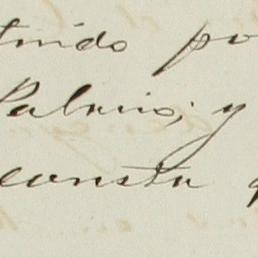 tuido po
Palacio; y
consta q